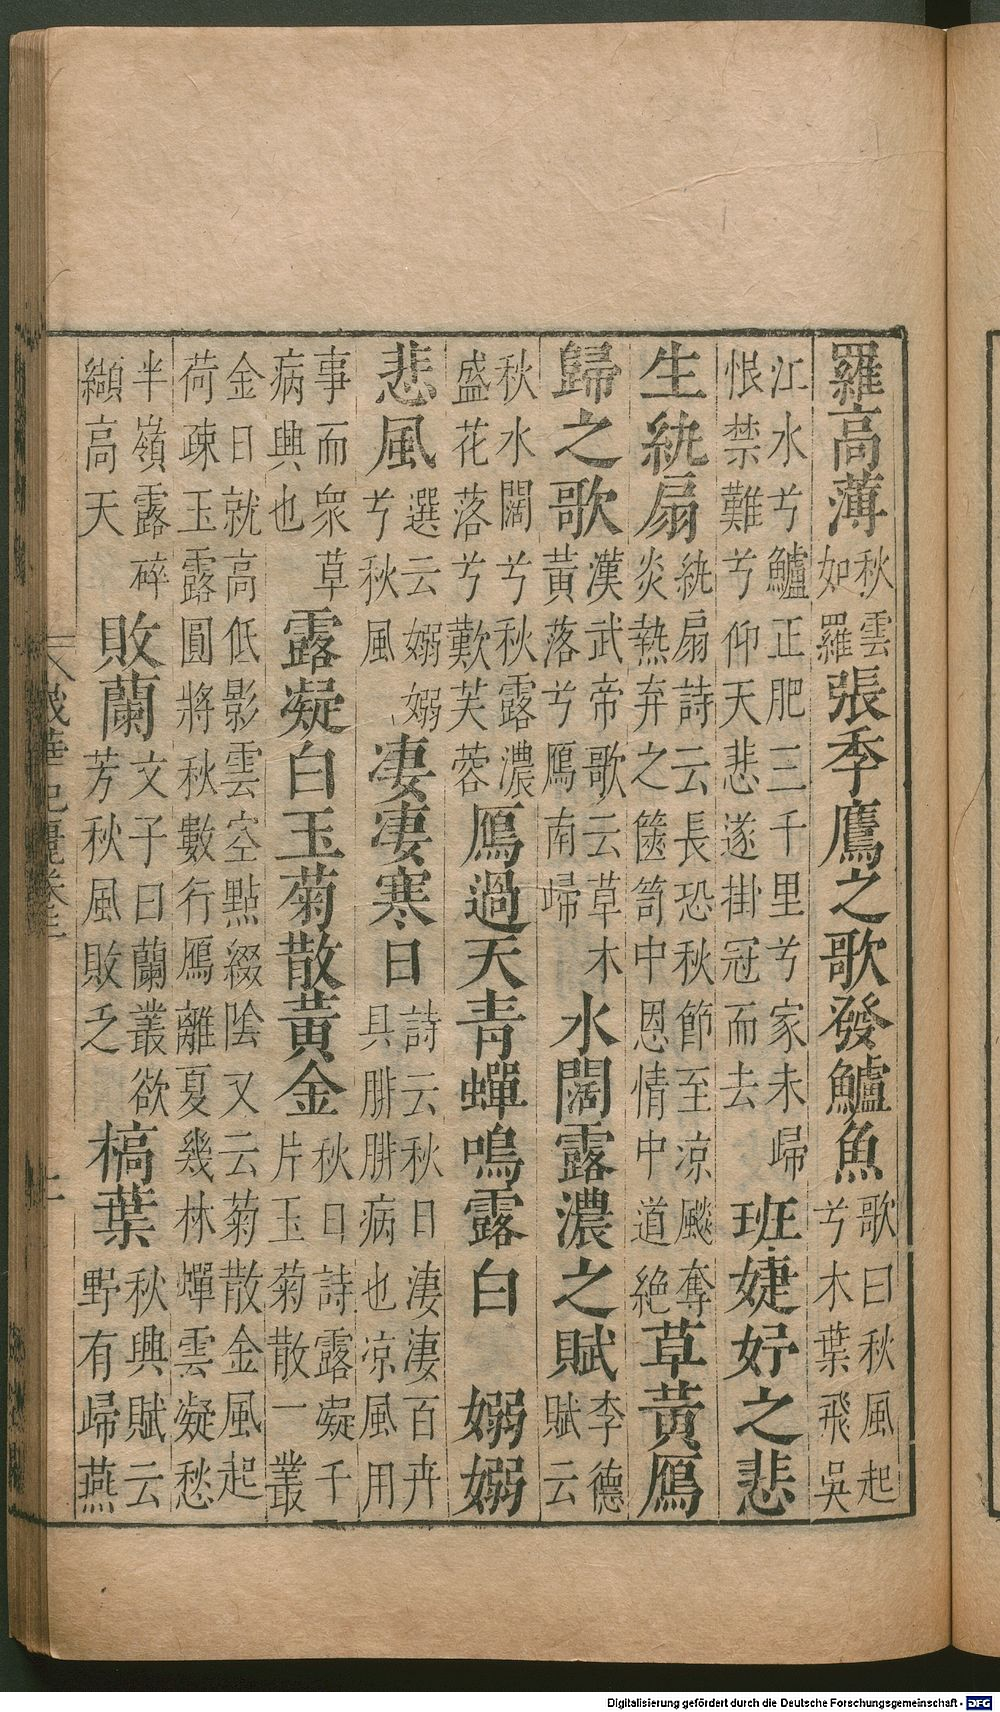 羅高薄秋雲如羅張季鷹之歌發鱸魚歌曰秋風起兮木葉飛吳
江水兮鱸正肥三千里兮家未歸恨禁難兮仰天悲遂掛冠而去班婕妤之悲
生紈扇紈扇詩云長恐秋節至涼飈奪炎熱弃之篋笥中恩情中道絶草黃鴈
歸之歌漢武帝歌云草木黃落兮鴈南歸水闊露濃之賦李德賦云
秋水闊兮秋露濃盛花落兮歎芙蓉鴈過天青蟬鳴露白嫋嫋
悲風選云嫋嫋兮秋風淒淒寒日詩云秋日淒淒百卉具腓腓病也凉風用
事而衆草病興也露凝白玉菊散黃金秋日詩露凝千片玉菊散一叢
金日就高低影雲空點綴陰又云菊散金風起荷疎玉露圓將秋數行鴈離夏幾林蟬雲凝愁
半嶺露碎纈高天敗蘭文子曰蘭叢欲芳秋風敗乏槁葉秋興賦云野有歸燕
Digitalisierung gefördert durch die Deutsche Forschungsgemeinschaft - DFG